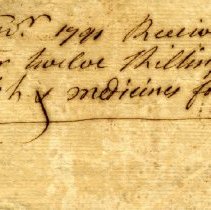 1791 Receiv
twelve Shilling
& medicines f